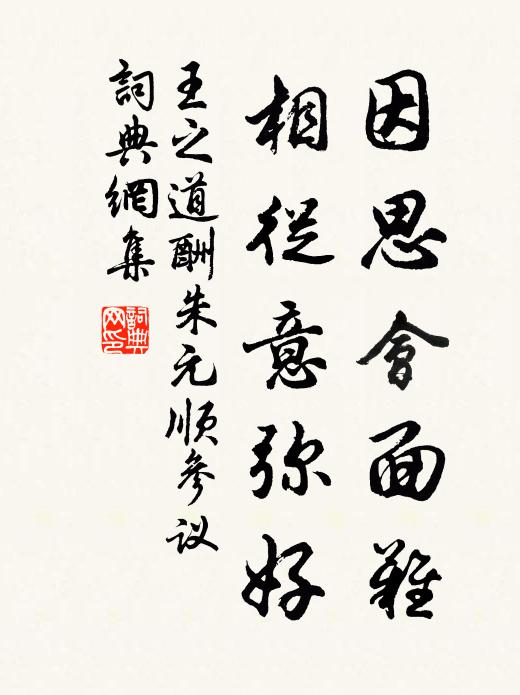 因思會面難
相從意弥好
王之道酬朱元順參议
詞典網集
詞典网印